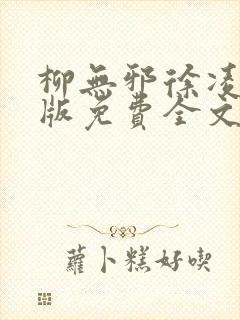 柳無邪徐凌
版免費全文
蘿卜糕好喫